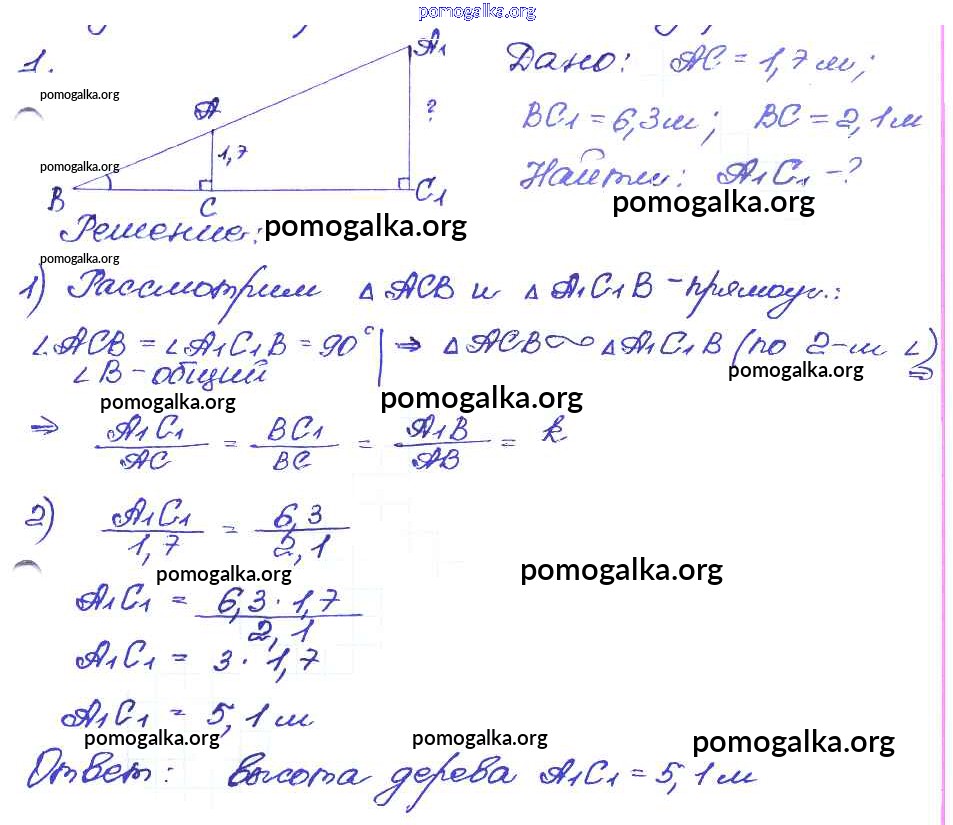 pomogalka.org
1.
A1
Дано: AC = 1,7 м;
pomogalka.org
A
?
BC1 = 6,3 м; BC = 2,1 м
1,7
pomogalka.org
Найти: A1C1 - ?
B
C
C1
pomogalka.org
Решение: pomogalka.org
pomogalka.org
1) Рассмотрим △ ACB и △ A1C1B - прямоуг.:
∠ACB = ∠A1C1B = 90° | ⇒ △ ACB ∾ △ A1C1B (по 2-м ∠) ⇒
∠B - общий
pomogalka.org
pomogalka.org pomogalka.org
⇒ A1C1/AC = BC1/BC = A1B/AB = k
2) A1C1/1,7 = 6,3/2,1
pomogalka.org pomogalka.org
A1C1 = 6,3 · 1,7/2,1
A1C1 = 3 · 1,7
A1C1 = 5,1 м
pomogalka.org pomogalka.org pomogalka.org
Ответ: высота дерева A1C1 = 5,1 м